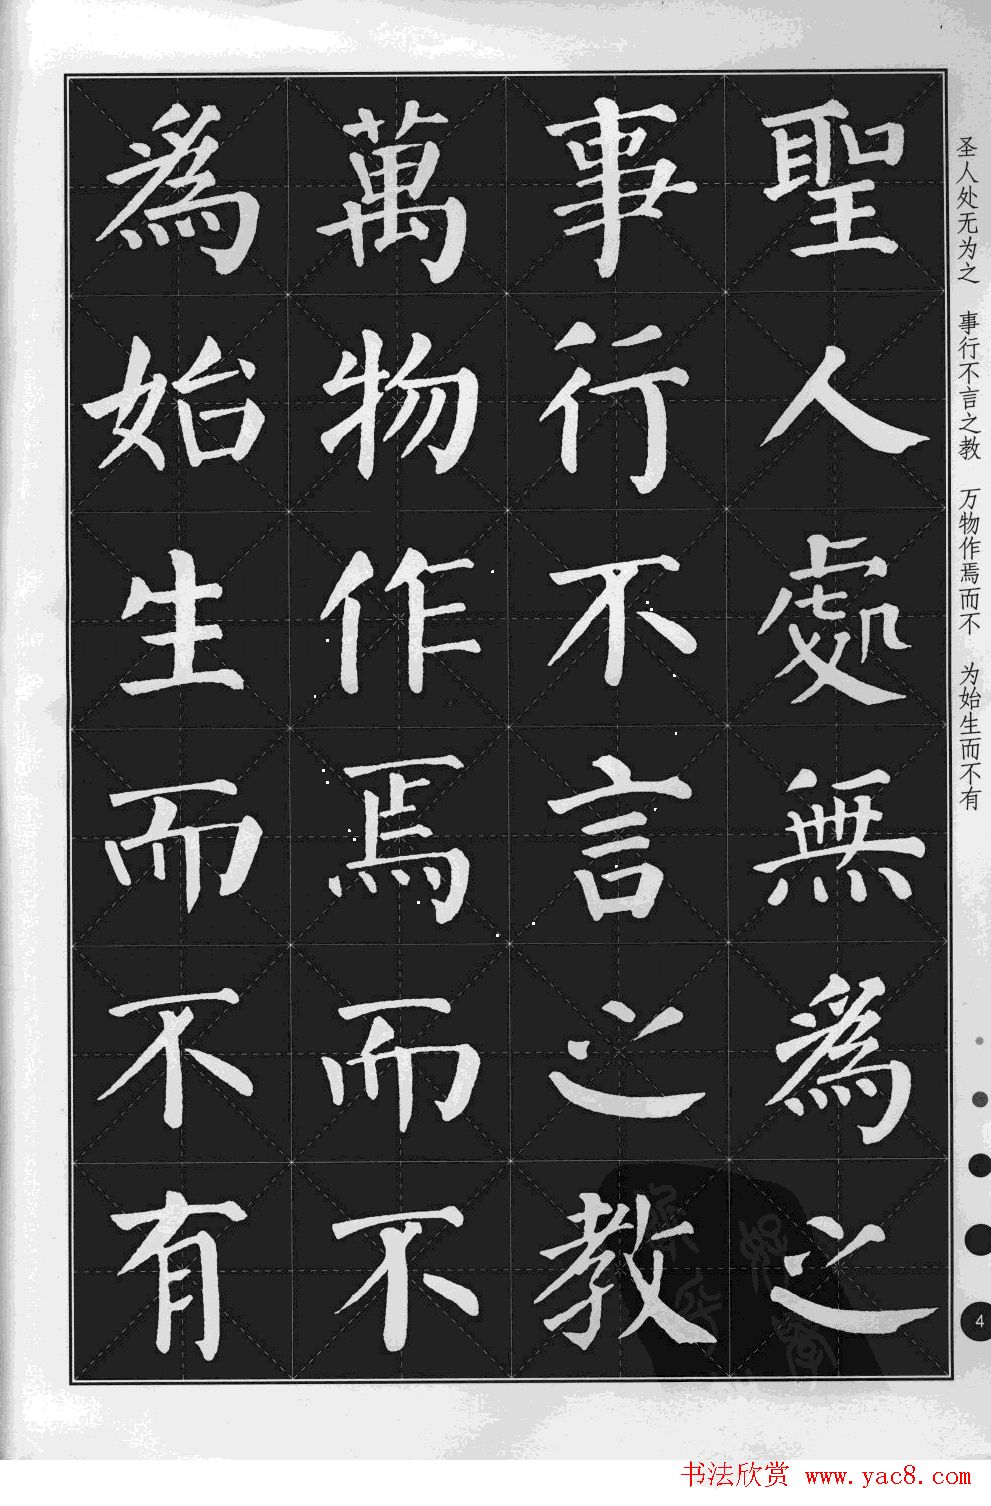 聖人處無爲之
事行不言之教
萬物作焉而不
爲始生而不有
圣人处无为之 事行不言之教 万物作焉而不 为始生而不有
4
书法欣赏 www.yac8.com